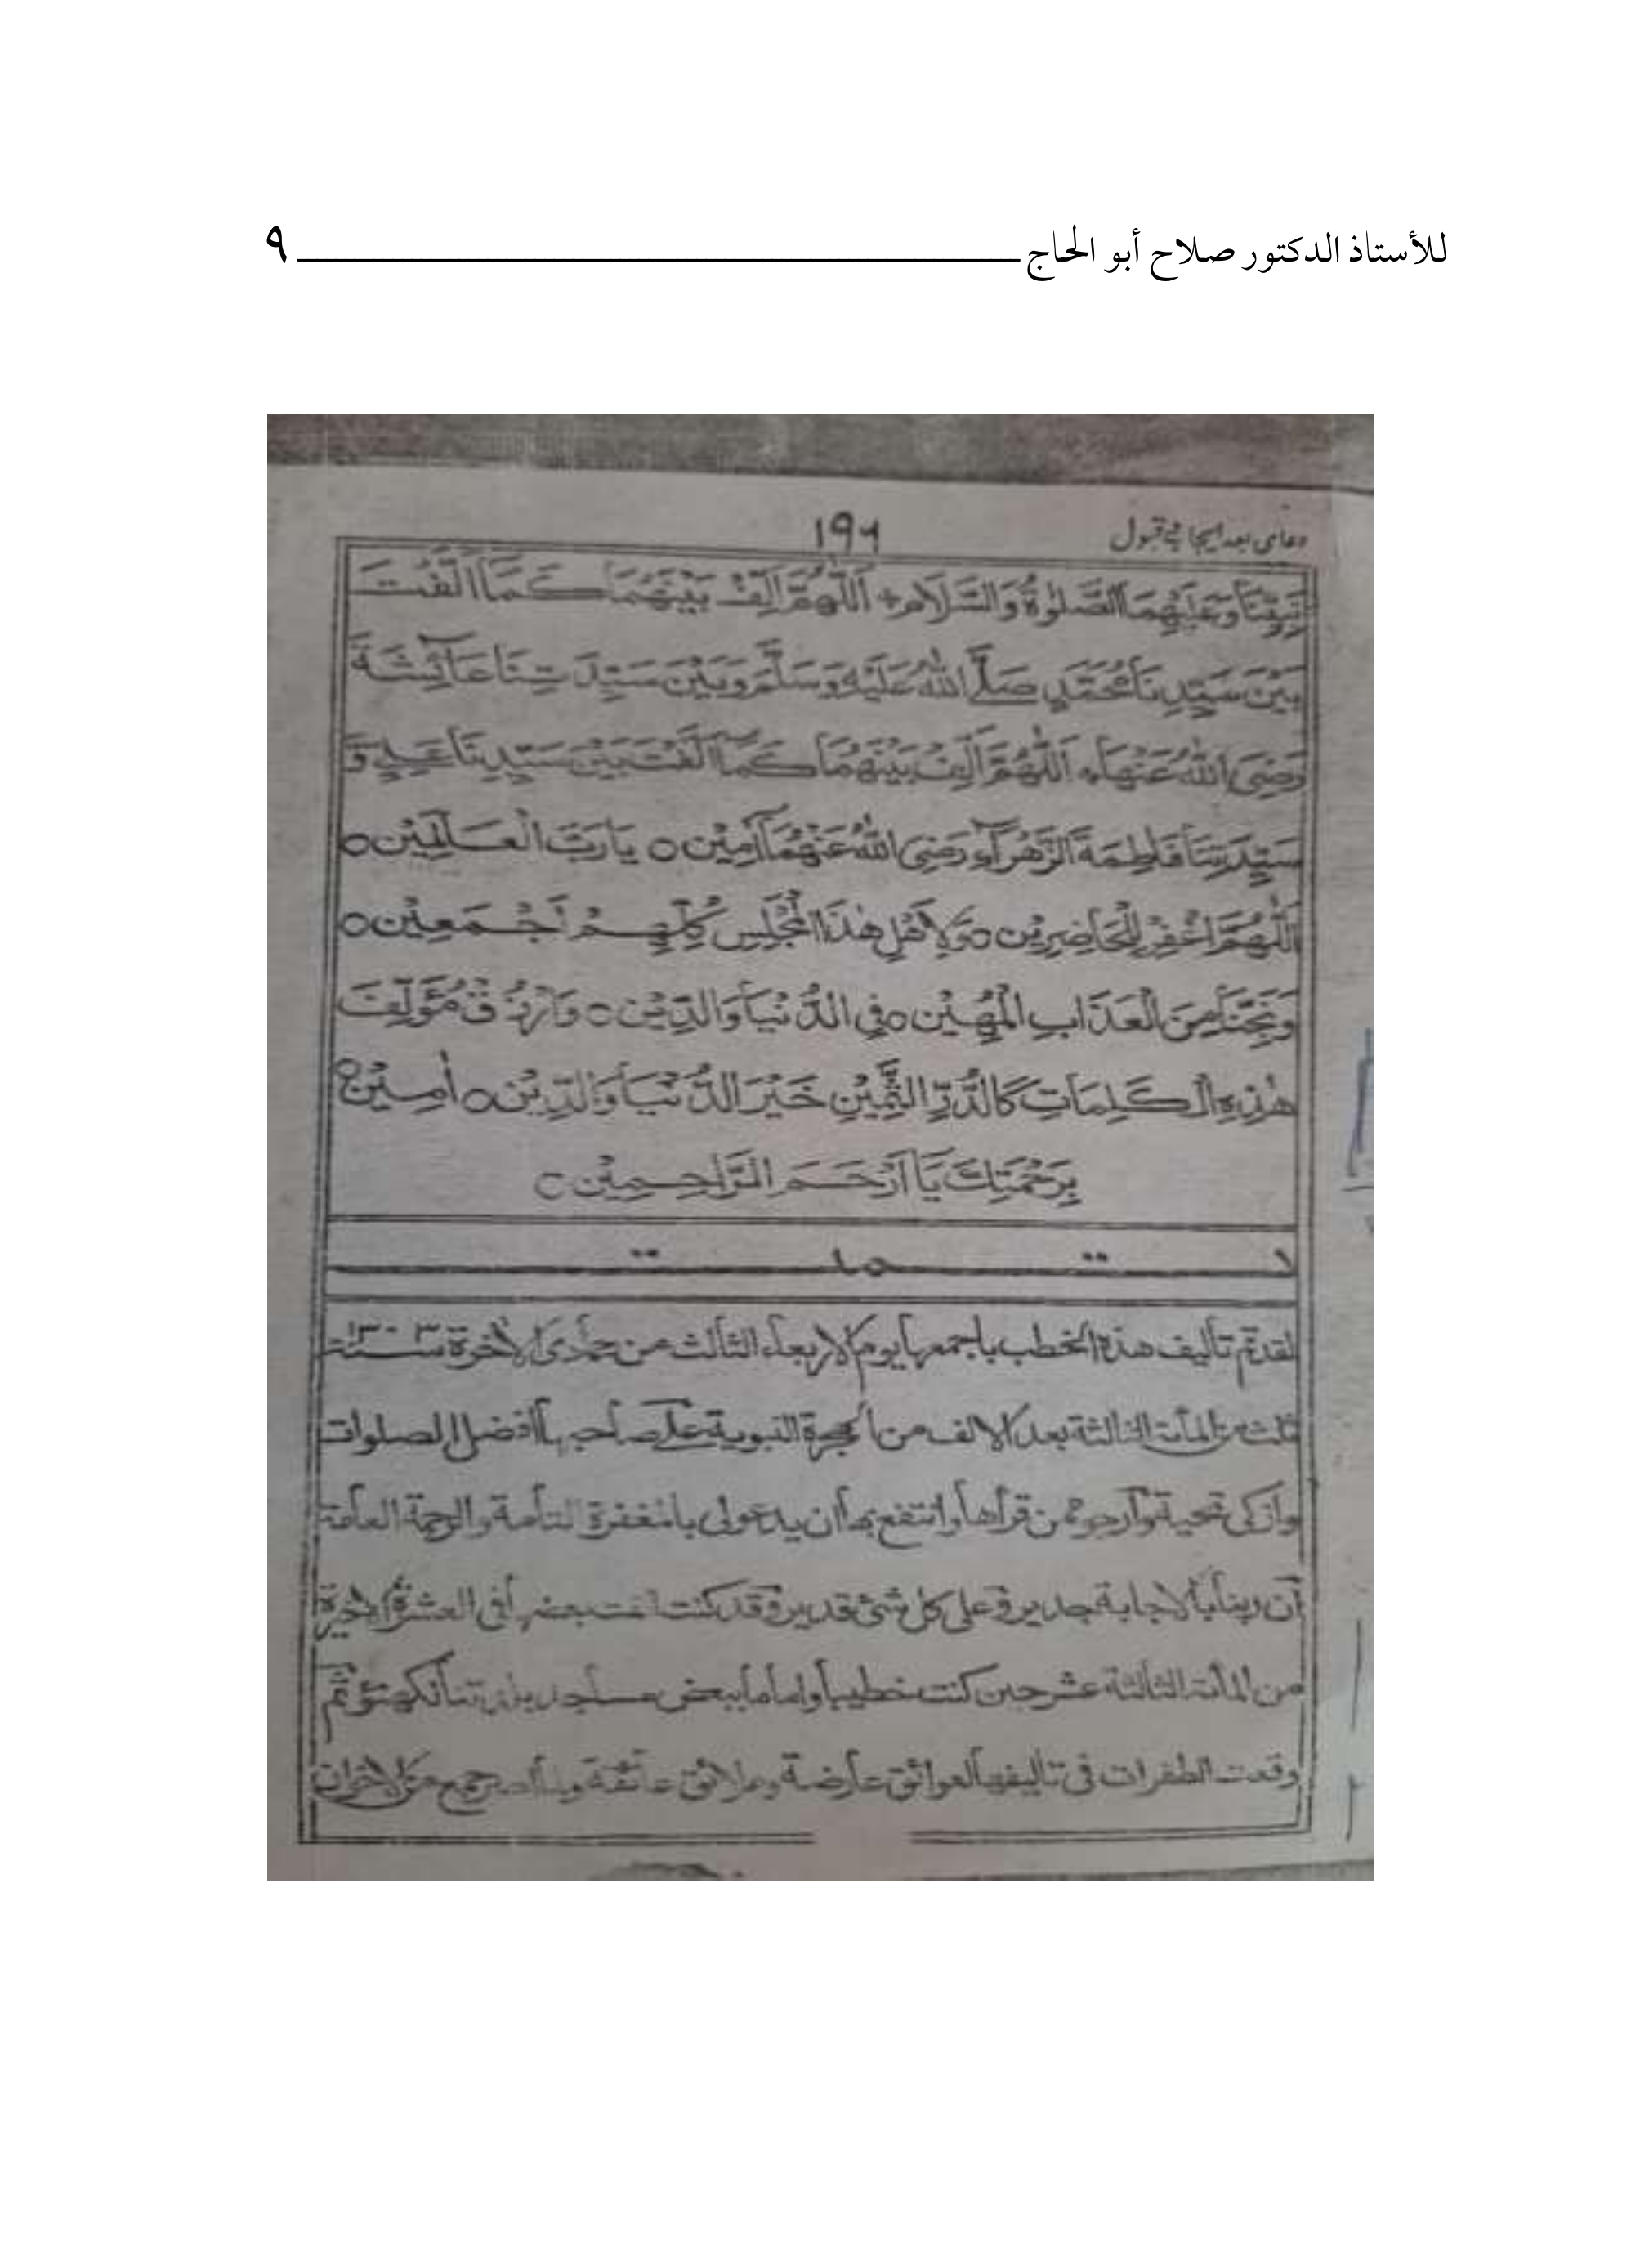 للأستاذ الدكتور صلاح أبو الحاج ٩
دعاى بعد ايجاب وقبول ١٩٦
نَبِيِّنَا وَعَلَيْهِمَا الصَّلٰوةُ وَالسَّلَامُ + اَللّٰهُمَّ اَلِّفْ بَيْنَهُمَا كَمَا اَلَّفْتَ
بَيْنَ سَيِّدِنَا مُحَمَّدٍ صَلَّى اللّٰهُ عَلَيْهِ وَسَلَّمَ وَبَيْنَ سَيِّدَتِنَا عَائِشَةَ
رَضِىَ اللّٰهُ عَنْهَا اَللّٰهُمَّ اَلِّفْ بَيْنَهُمَا كَمَا اَلَّفْتَ بَيْنَ سَيِّدِنَا عَلِيٍ وَّ
سَيِّدَتِنَا فَاطِمَةَ الزَّهْرَآءِ رَضِىَ اللّٰهُ عَنْهُمَا آمِيْن ٥ يَارَبَّ الْعَالَمِيْن ٥
اَللّٰهُمَّ اغْفِرْ لِلْحَاضِرِيْن ٥ وَلِاَهْلِ هٰذَا الْمَجْلِسِ كُلِّهِمْ اَجْمَعِيْن ٥
وَنَجِّنَا مِنَ الْعَذَابِ الْمُهِيْن ٥ فِى الدُّنْيَا وَالدِّيْن ٥ وَارْزُقْ مُؤَلِّفَ
هٰذِهِ الْكَلِمَاتِ كَالدُّرِّ الثَّمِيْنِ خَيْرَ الدُّنْيَا وَالدِّيْن ٥ اٰمِيْن ٥
بِرَحْمَتِكَ يَا اَرْحَمَ الرَّاحِمِيْن ٥
تمت
لقد تم تأليف هذه الخطب باجمعها يوم الاربعاء الثالث من جمادى الاخرة سنة ١٣٠٣
ثلث من المأة الثالثة بعد الالف من الهجرة النبوية على صاحبها افضل الصلوات
وازكى تحية وارجو ممن قرأها وانتفع بها ان يدعولى بالمغفرة التامة والرحمة العامة
ان ربنا بالاجابة جدير وعلى كل شئ قدير وقد كنت الفت بعضها فى العشرة الاخيرة
من المأة الثالثة عشر حين كنت خطيبا واماما ببعض مساجد بلدتنا لكهنؤ ثم
وقعت الطفرات فى تاليفها لعوائق عارضة وعلائق عائقة جمع من الاخوان